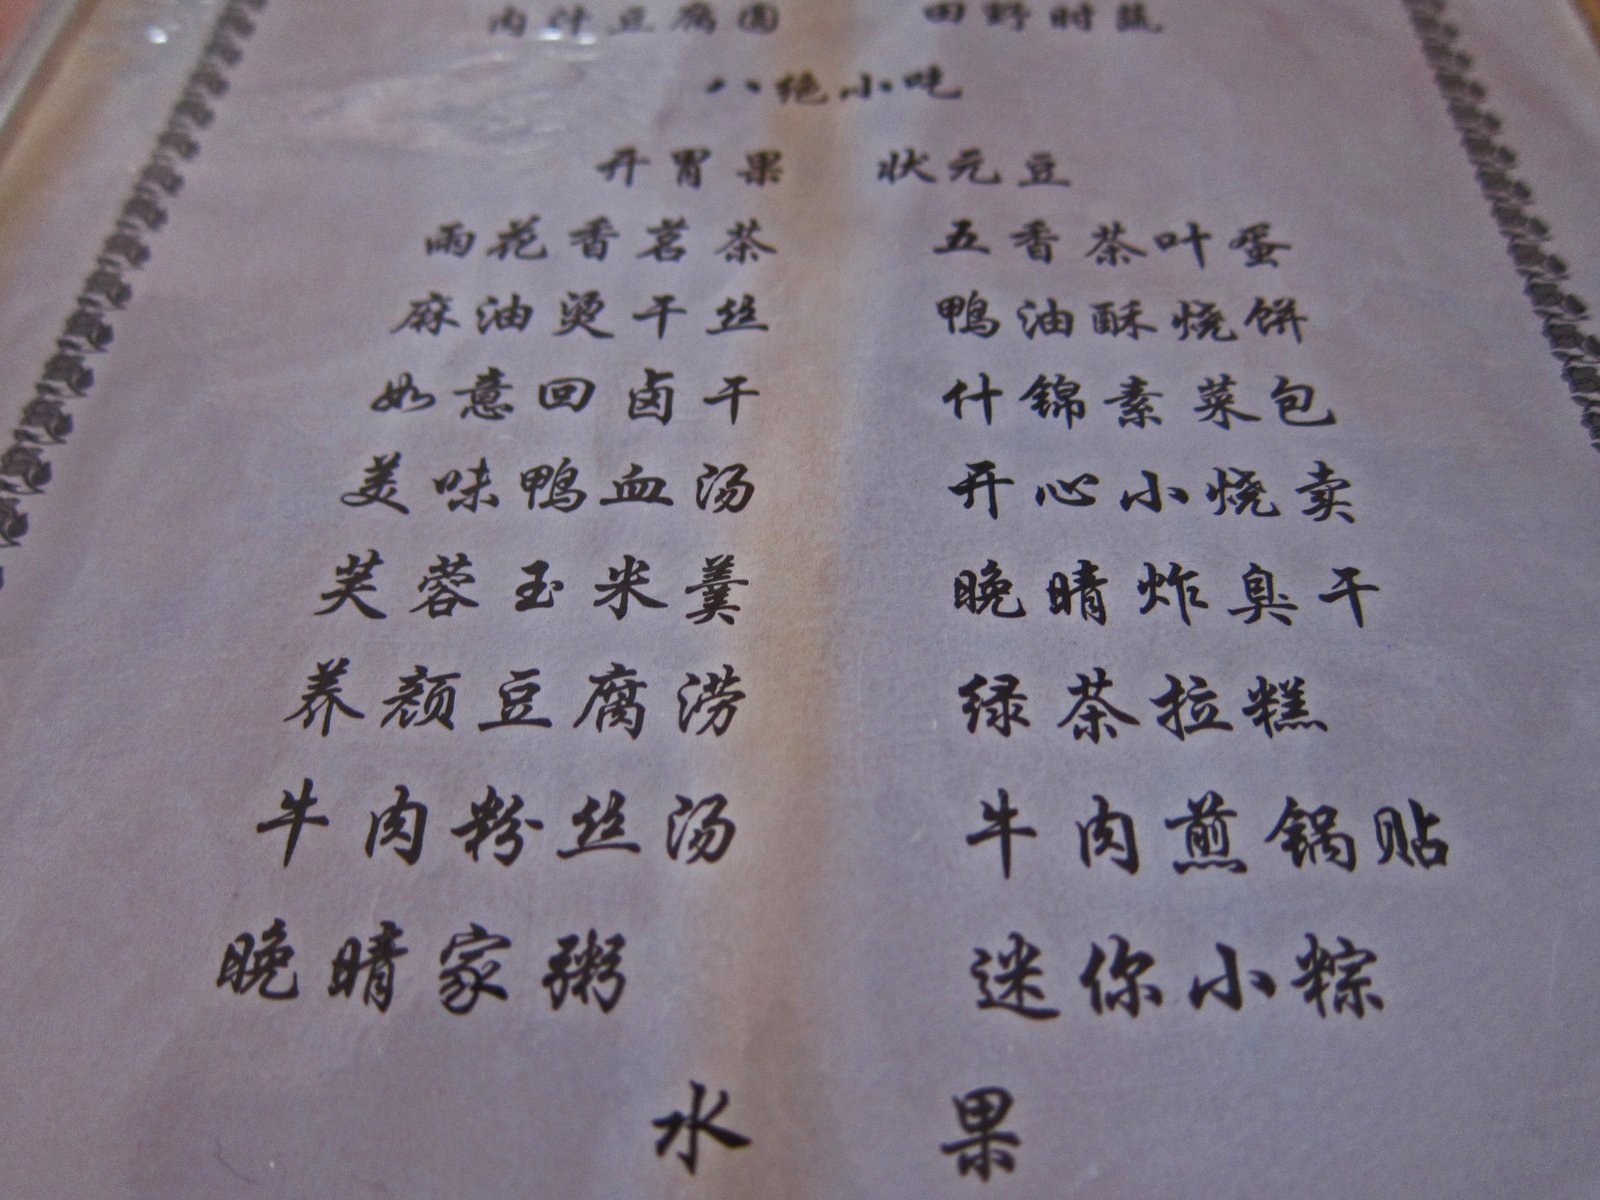 肉汁豆腐圆 田野时蔬
八绝小吃
开胃果 状元豆
雨花香茗茶 五香茶叶蛋
麻油烫干丝 鸭油酥烧饼
如意回卤干 什锦素菜包
美味鸭血汤 开心小烧卖
芙蓉玉米羹 晚晴炸臭干
养颜豆腐涝 绿茶拉糕
牛肉粉丝汤 牛肉煎锅贴
晚晴家粥 迷你小粽
水果